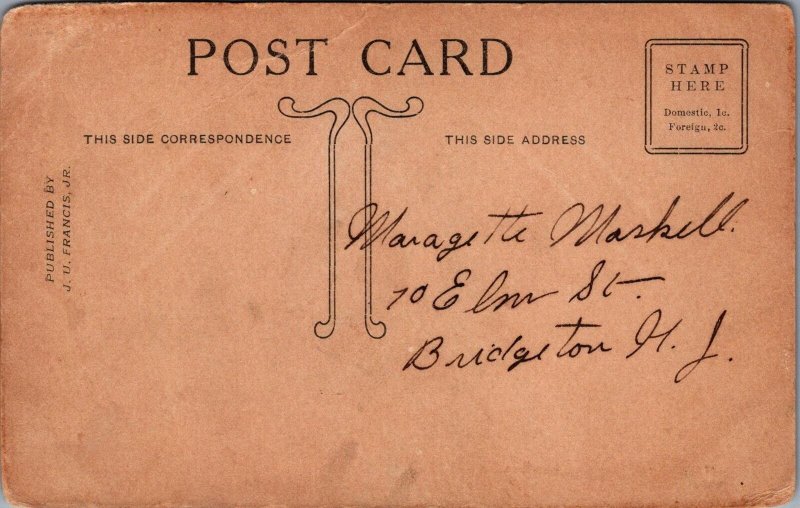 POST CARD
STAMP
HERE
Domestic, 1c.
Foreign, 2c.
THIS SIDE CORRESPONDENCE
THIS SIDE ADDRESS
PUBLISHED BY
J. U. FRANCIS, JR.
Maragette Maskell.
70 Elm St.
Bridgeton N. J.